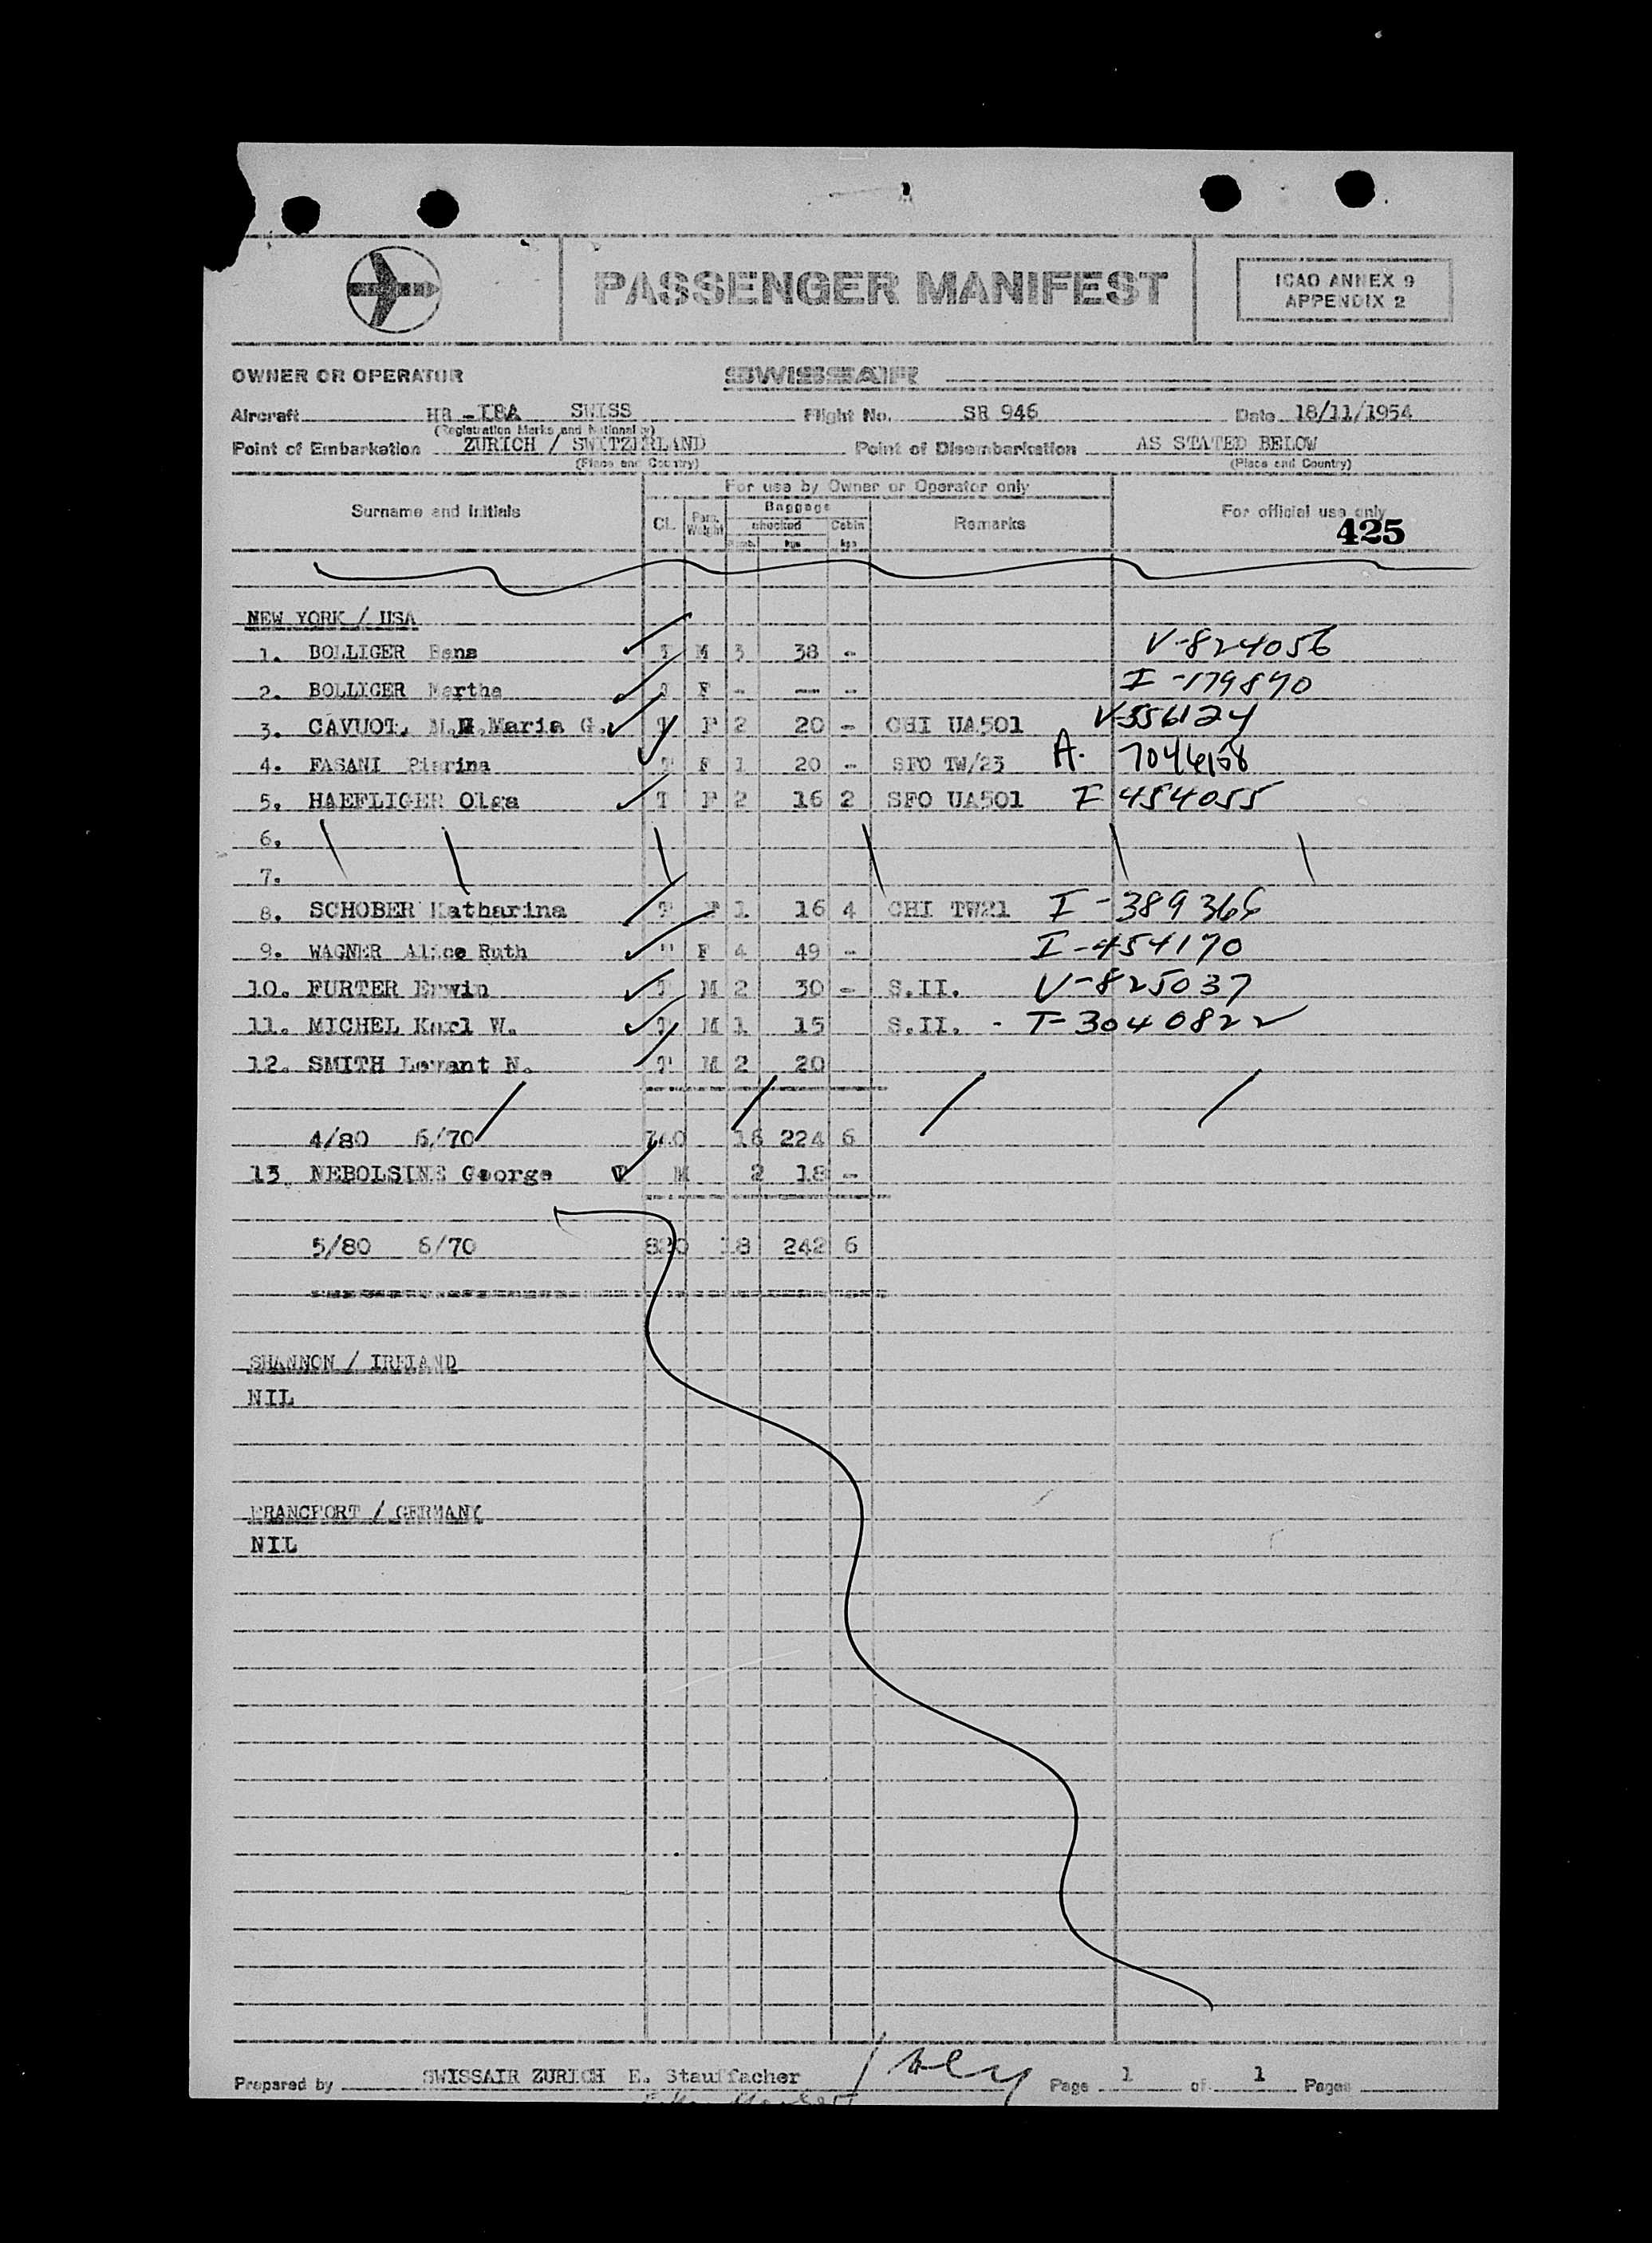 PASSENGER MANIFEST
ICAO ANNEX 9
APPENDIX 2
OWNER OR OPERATOR SWISSAIR
Aircraft HB-IBA SWISS Flight No. SR 946 Date 18/11/1954
(Registration Marks and Nationality)
Point of Embarkation ZURICH / SWITZERLAND Point of Disembarkation AS STATED BELOW
(Place and Country) (Place and Country)
For use by Owner or Operator only
Surname and initials CL. Pass. Weight Baggage checked Numb. kgs Cabin kgs Remarks For official use only
425
NEW YORK / USA
1. BOLLIGER Hans T M 3 38 - V-824056
2. BOLLIGER Martha T F - -- - I-179890
3. CAVUOT, M.M.Maria G. T F 2 20 - CHI UA501 V-556124
4. FASANI Pierina T F 1 20 - SFO TW/23 A. 7046158
5. HAEFLIGER Olga T F 2 16 2 SFO UA501 I 454055
6.
7.
8. SCHOBER Katharina T F 1 16 4 CHI TW21 I-389366
9. WAGNER Alice Ruth " F 4 49 - I-454170
10. FURTER Erwin T M 2 30 - S.II. V-825037
11. MICHEL Karl W. T M 1 15 S.II. - T-3040822
12. SMITH Levant N. T M 2 20
4/80 6/70 740 16 224 6
13. NEBOLSINE George T M 2 18 -
5/80 6/70 820 18 242 6
SHANNON / IRELAND
NIL
FRANCFORT / GERMANY
NIL
Prepared by SWISSAIR ZURICH E. Stauffacher Page 1 of 1 Pages